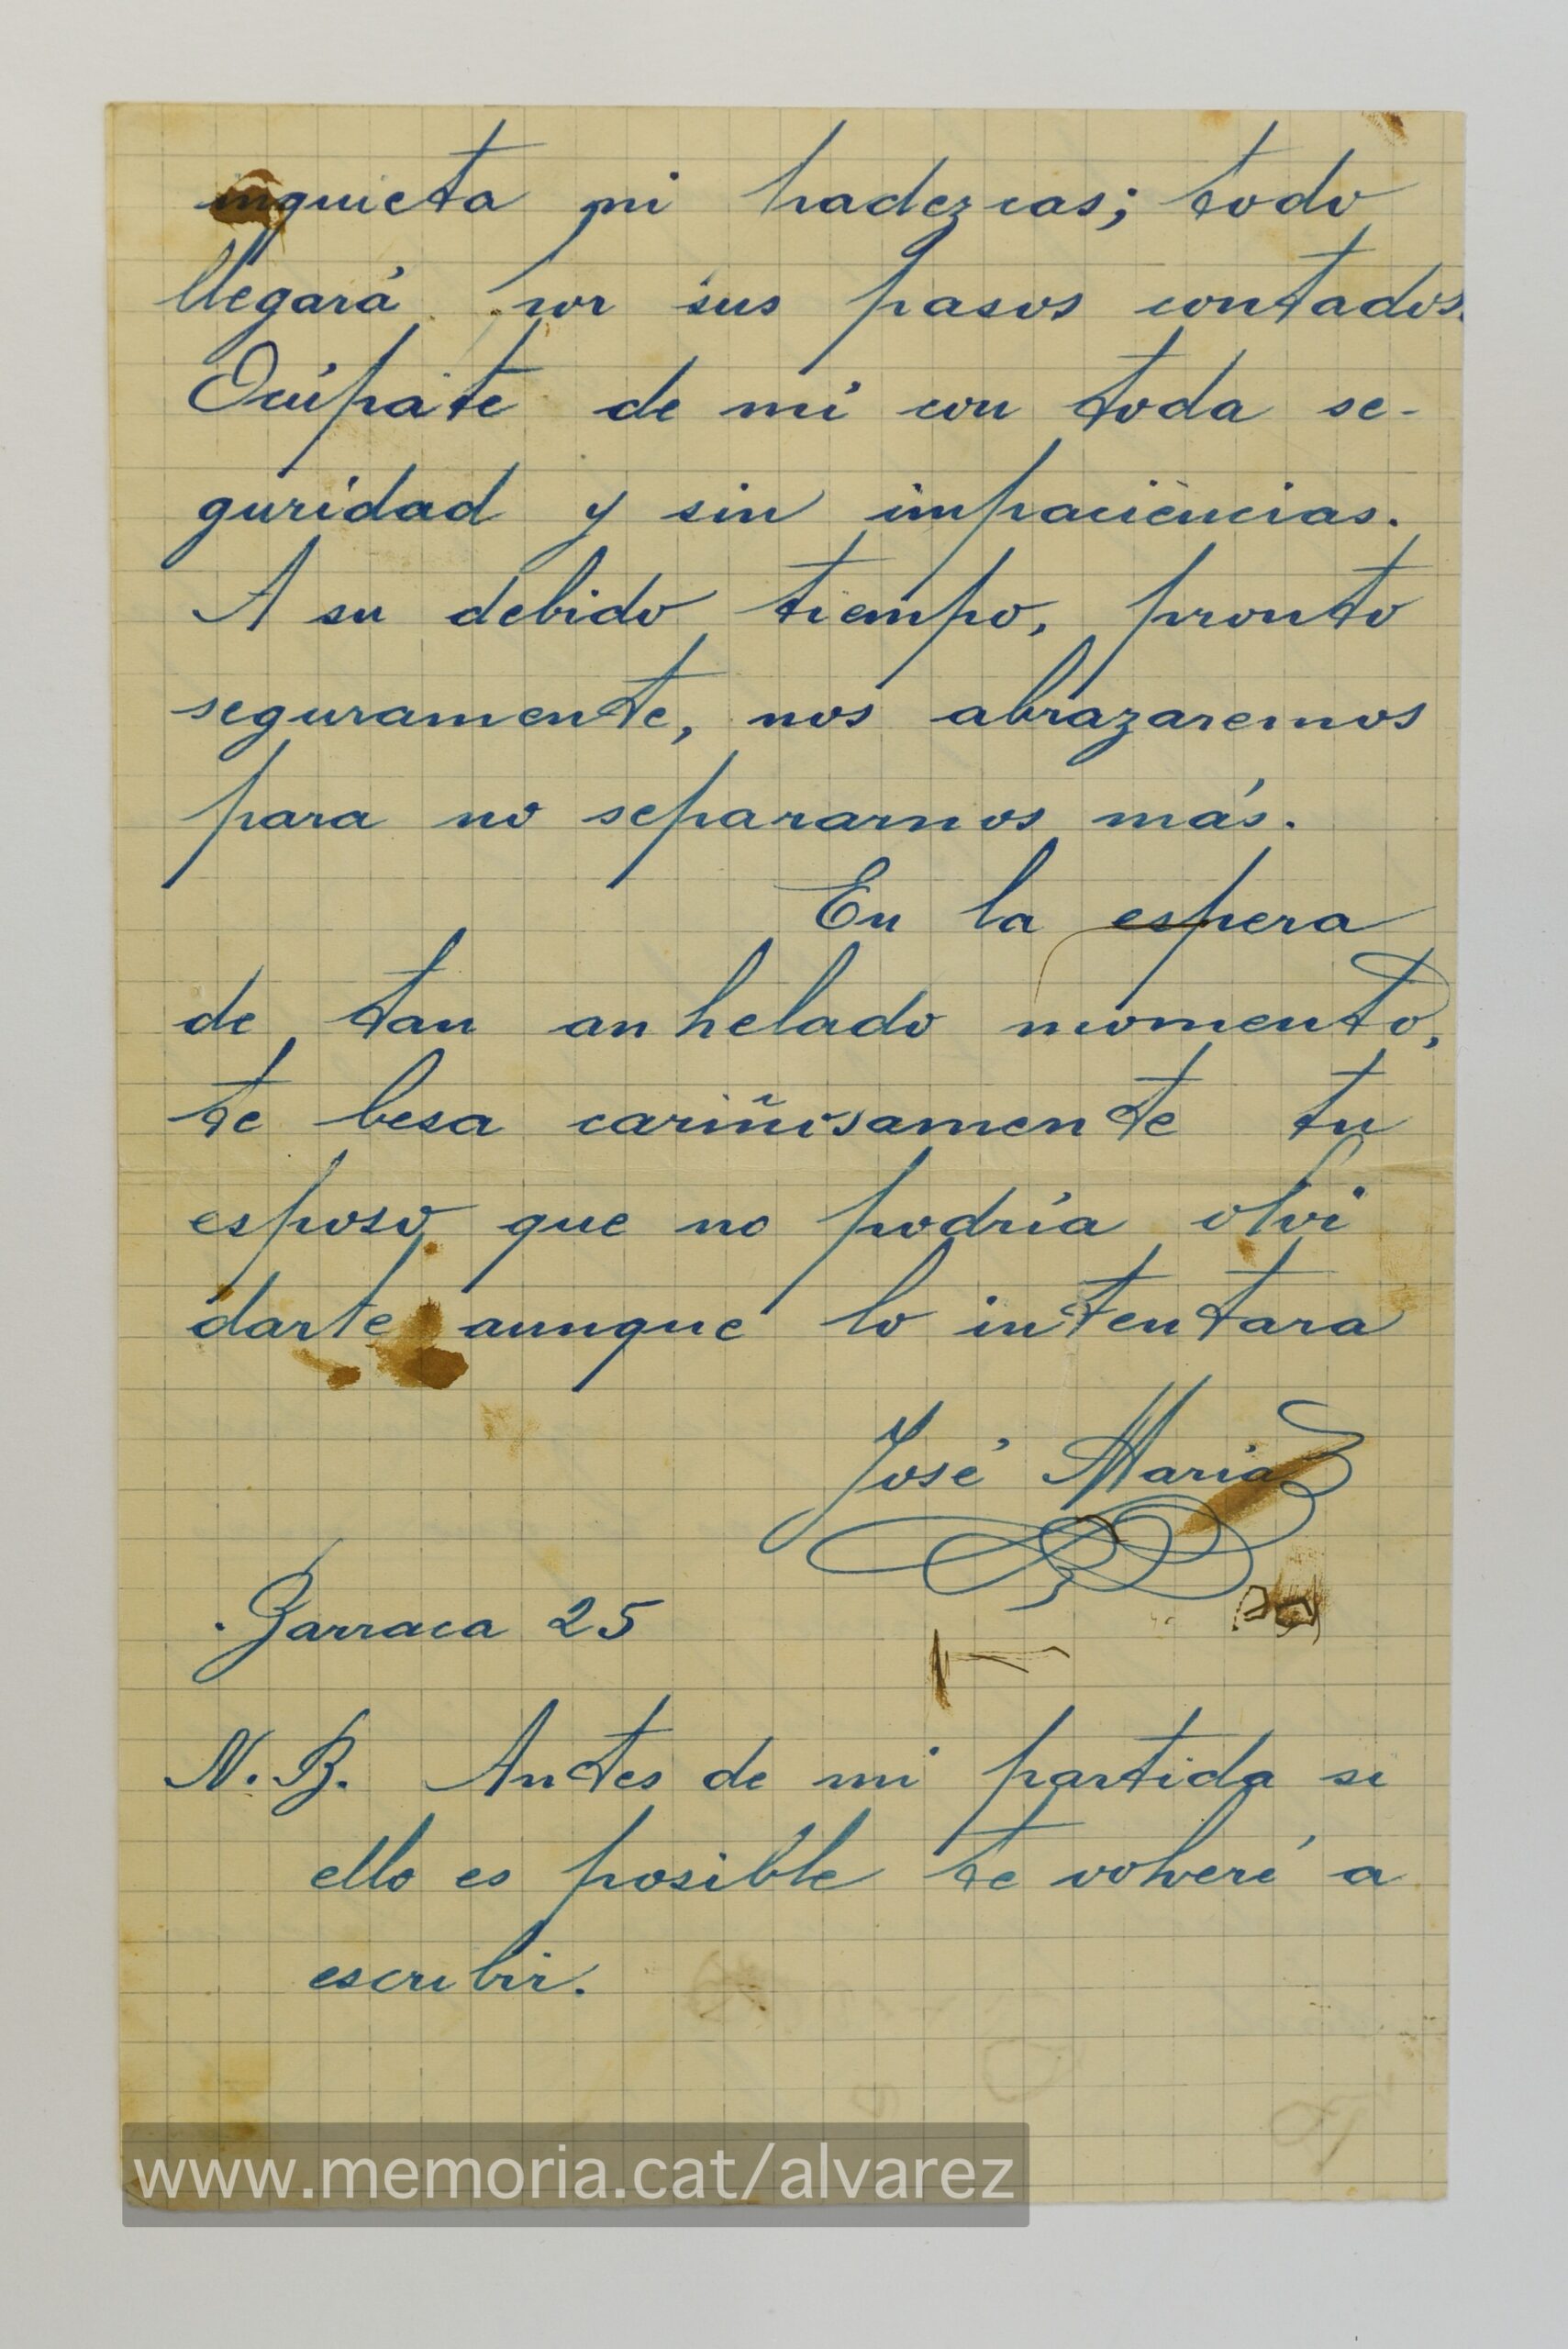 inquieta ni padezcas; todo
llegará por sus pasos contados.
Ocúpate de mí con toda se-
guridad y sin impaciencias.
A su debido tiempo, pronto
seguramente, nos abrazaremos
para no separarnos más.
En la espera
de tan anhelado momento,
te besa cariñosamente tu
esposo que no podría olvi
darte aunque lo intentara
José María
Barraca 25
N.B. Antes de mi partida si
ello es posible te volveré a
escribir.
www.memoria.cat/alvarez